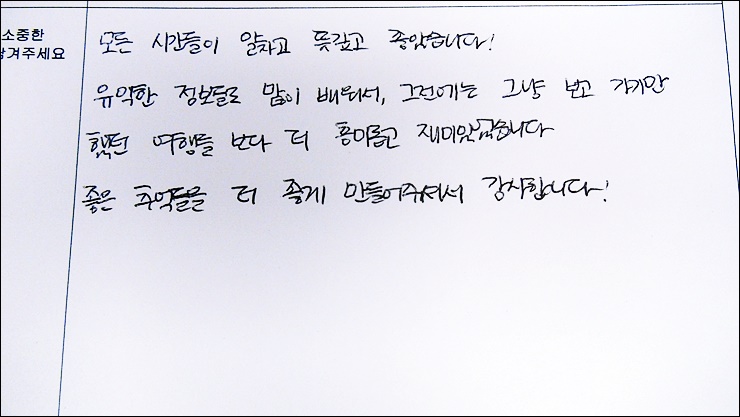 소중한
남겨주세요
모든 시간들이 알차고 뜻깊고 좋았습니다!
유익한 정보들로 많이 배워서, 그전에는 그냥 보고 가기만
했던 여행들 보다 더 흥미롭고 재미있었습니다
좋은 추억들을 더 좋게 만들어주셔서 감사합니다!